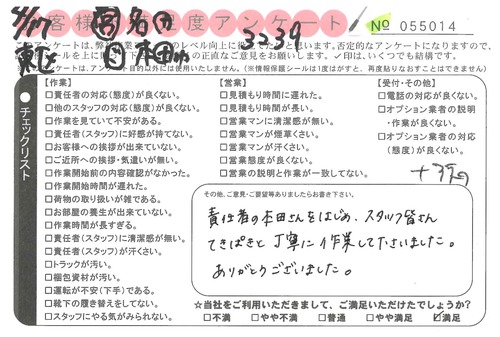 お客様満足度アンケート
4/17
3239
No 055014
このアンケートは、弊社
レベル向上に
と思います。否定的なアンケートになりますので、
正直なご意見をお願いします。✓印は、いくつでも結構です。
アンケート目的以外には使用いたしません。(※情報保護シールは1度はがすと、再度貼りなおすことはできません)
チェックリスト
【作業】
□責任者の対応(態度)が良くない。
□他のスタッフの対応(態度)が良くない。
□作業を見ていて不安がある。
□責任者(スタッフ)に好感が持てない。
□お客様への挨拶が出来ていない。
□ご近所への挨拶・気遣いが無い。
□作業開始前の内容確認がなかった。
□作業開始時間が遅れた。
□荷物の取り扱いが雑である。
□お部屋の養生が出来ていない。
□作業時間が長すぎる。
□責任者(スタッフ)に清潔感が無い。
□責任者(スタッフ)が汗くさい。
□トラックが汚い。
□梱包資材が汚い。
□運転が不安(下手)である。
□靴下の履き替えをしてない。
□スタッフにやる気がみられない。
【営業】
□見積もり時間に遅れた。
□見積もり時間が長い。
□営業マンに清潔感が無い。
□営業マンが煙草くさい。
□営業マンが汗くさい。
□営業態度が良くない。
□営業の説明と作業が一致してない。
【受付・その他】
□電話の対応が良くない。
□オプション業者の説明
・作業が良くない。
□オプション業者の対応
(態度)が良くない。
その他、ご意見・ご要望等ありましたらお書き下さい。
責任者の本田さんをはじめ、スタッフ皆さん
てきぱきと丁寧に作業して下さいました。
ありがとうございました。
☆当社をご利用いただきまして、ご満足いただけたでしょうか?
□不満 □やや不満 □普通 □やや満足 ☑満足